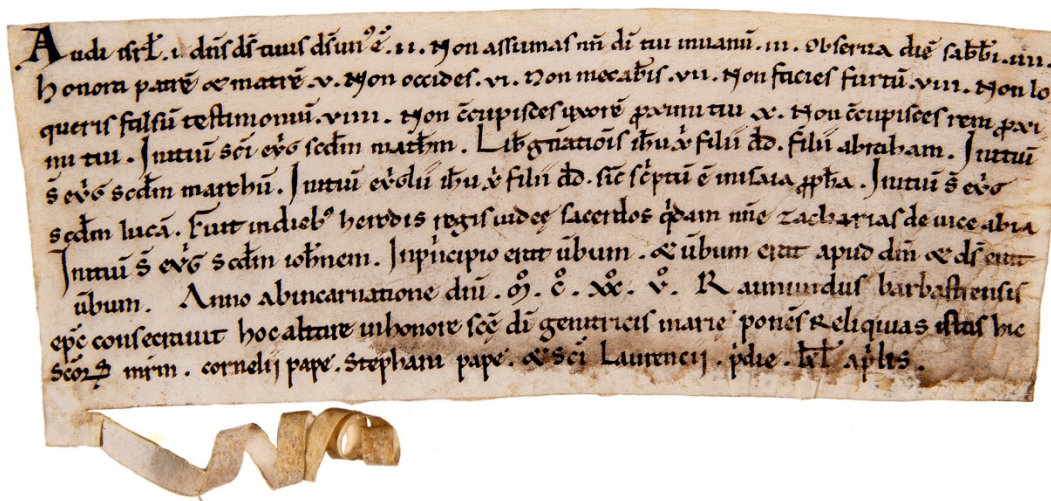 Audi isrł. i. dn̄s ds̄ tuus ds̄ un᷒ ē. ii. Non assumas nn̄ di̅ tui inuanū. iii. Obserua diē sab̄b̄i. iiii.
honora patrē & matrē. v. Non occides. vi. Non mecab̄is. vii. Non facies furtū. viii. Non lo
queris falsū testimoniū. viiii. Non c̄cupisces uxorē ꝓximi tui. x. Non c̄cupisces rem ꝓxi
mi tui. Initiū sc̄i eṽg scd̄m math̄m. Lib̄ gn̄atiōis ih̄u x̄ filii dd̄. filii abraham. Initiū
s̄ eṽg scd̄m marchū. Initiū eṽglii ih̄u x̄ filii dd̄. sic̄ sc̄ptū ē inisaia ꝓph̄a. Initiū s̄ eṽg
scd̄m lucā. Fuit indieb᷒ herodis regis iudeę sacerdos q̇dam nn̄e zacharias de uice abia
Initiū s̄ eṽg scd̄m ioh̄nem. Inpincipio erat ūbum. & ūbum erat apud dm̄ & ds̄ erat
ūbum. Anno abincarnatione dn̄i. M̊. C̊. XX̊. V̊. Raimundus barbastrensis
epc̄ consecrauit hoc altare inhonore sc̄ę di̅ genitricis marie ponēs Reliquias istas hic
Sc̄oꝝ mr̄m. cornelii pape. Stephani pape. & Sc̄i Laurencii. p̍die. kł ap̍lis.